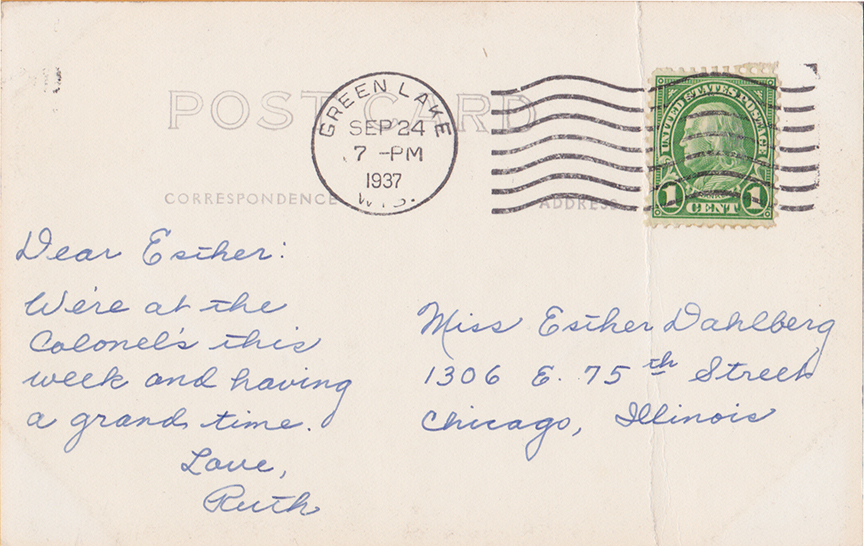 POST CARD
GREEN LAKE
SEP 24
7 -PM
1937
WIS.
UNITED STATES POSTAGE
1 CENT 1
CORRESPONDENCE
ADDRESS
Dear Esther:
We're at the
Colonel's this
week and having
a grand time.
Love,
Ruth
Miss Esther Dahlberg
1306 E. 75th Street
Chicago, Illinois